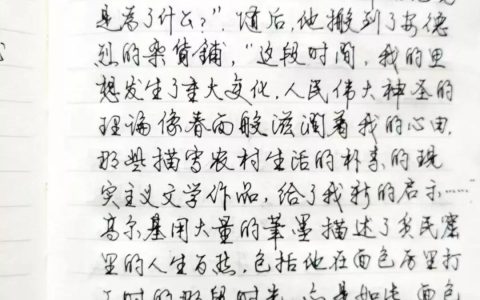 是为了什么?”。随后,他搬到了安德
烈的杂货鋪,“这段时间,我的思
想发生了重大变化,人民伟大神圣的
理论像春雨般滋润着我的心田,
那些描写农村生活的朴素的现
实主义文学作品,给了我新的启示……”
高尔基用大量的筆墨描述了贫民窟
里的人生百态,包括他在面包房里打
工时的那段时光